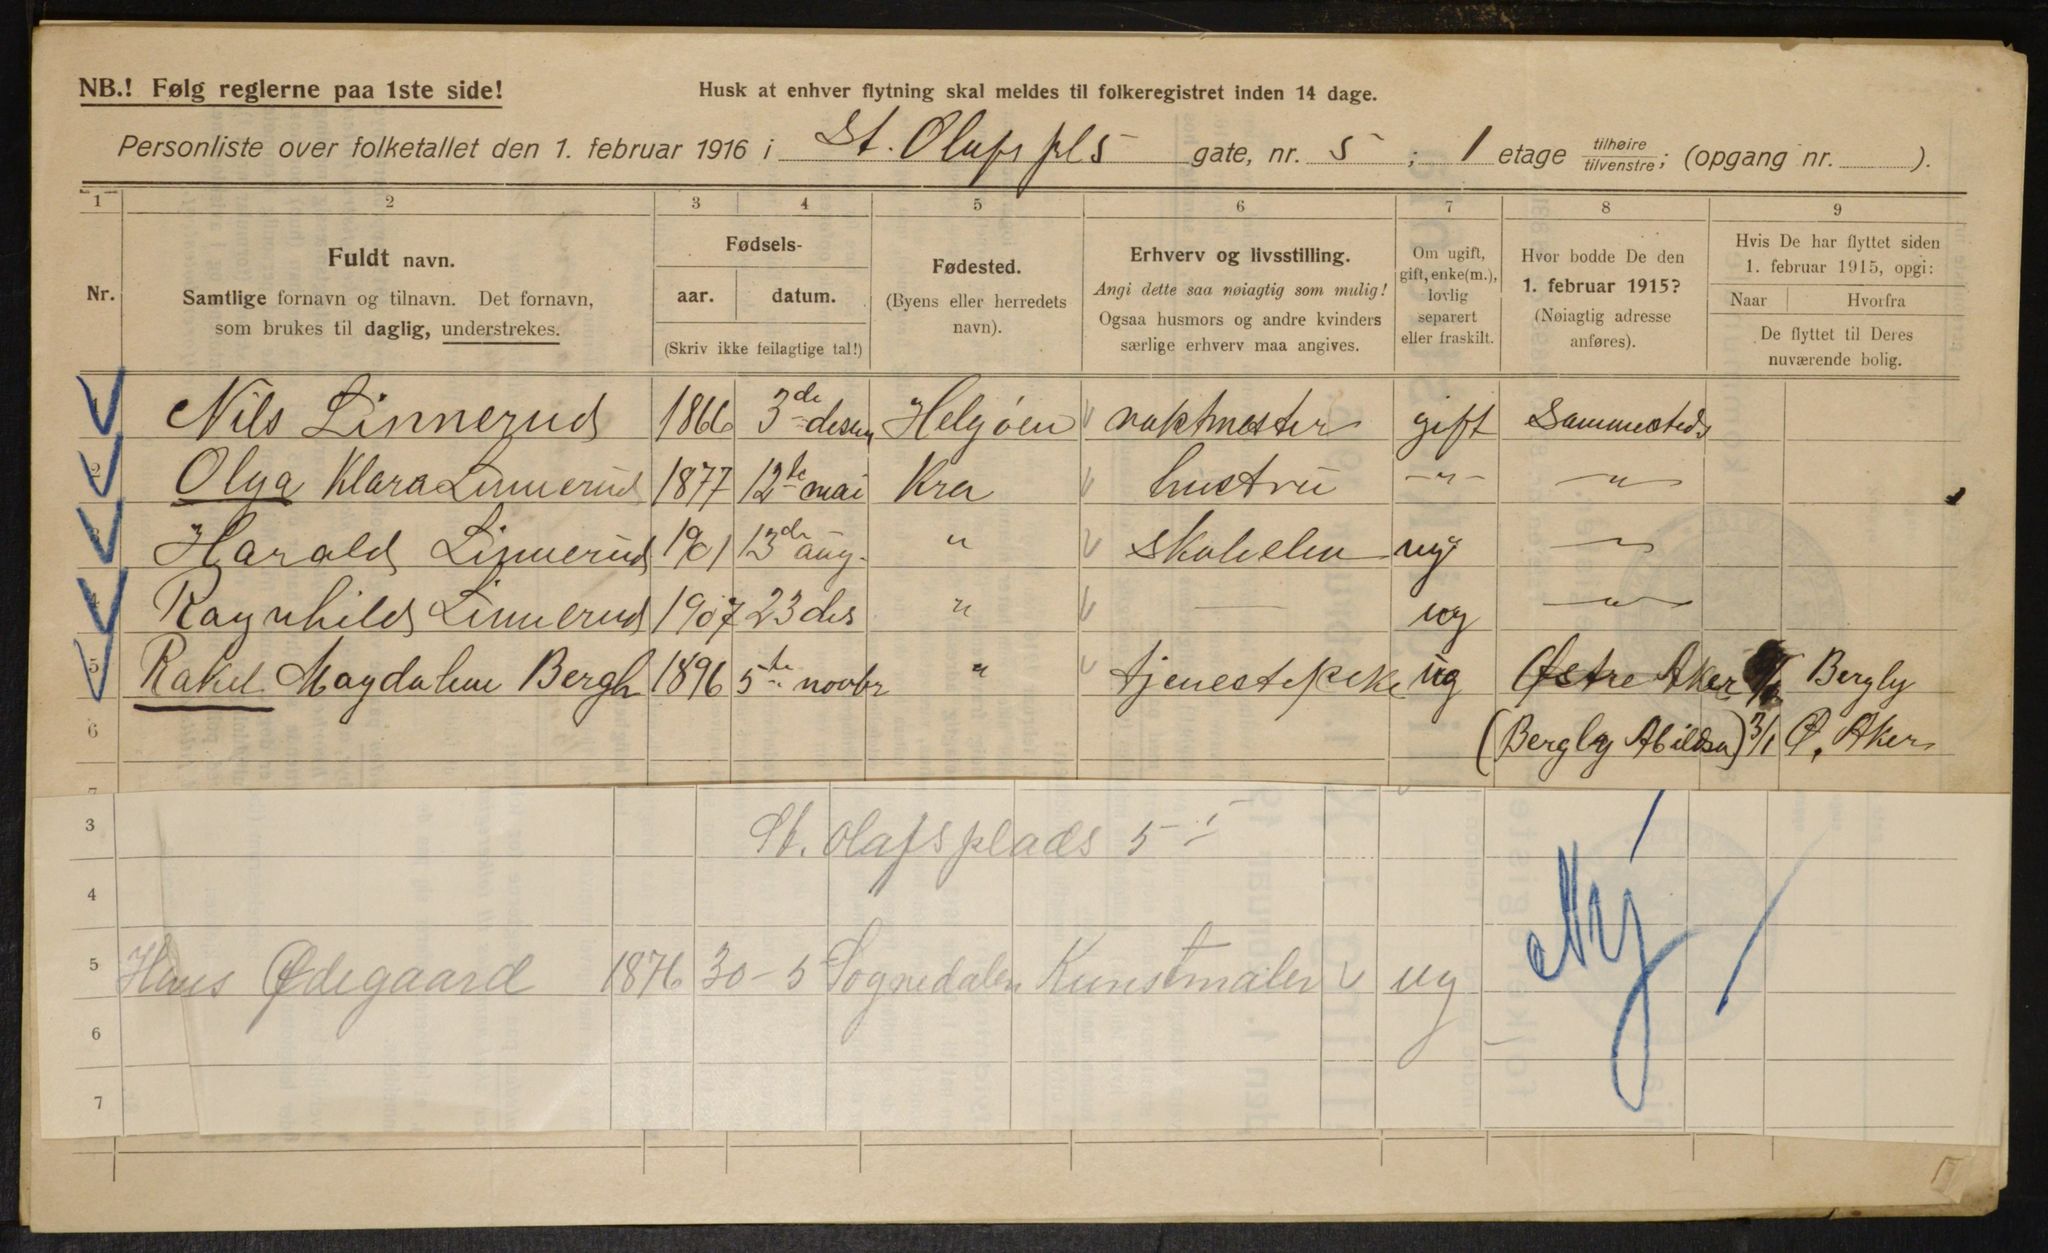 NB.! Følg reglerne paa 1ste side!
Husk at enhver flytning skal meldes til folkeregistret inden 14 dage.
Personliste over folketallet den 1. februar 1916 i St. Olafs pl 5 gate, nr. 5 ; 1 etage tilhøire/tilvenstre; (opgang nr. ).
1 2 3 4 5 6 7 8 9
Nr.
Fuldt navn.
Samtlige fornavn og tilnavn. Det fornavn,
som brukes til daglig, understrekes.
Fødsels-
aar. datum.
(Skriv ikke feilagtige tal!)
Fødested.
(Byens eller herredets
navn).
Erhverv og livsstilling.
Angi dette saa nøiagtig som mulig!
Ogsaa husmors og andre kvinders
særlige erhverv maa angives.
Om ugift,
gift, enke(m.),
lovlig
separert
eller fraskilt.
Hvor bodde De den
1. februar 1915?
(Nøiagtig adresse
anføres).
Hvis De har flyttet siden
1. februar 1915, opgi:
Naar Hvorfra
De flyttet til Deres
nuværende bolig.
1 Nils Linnerud 1866 3de desem Helgøen vaktmester gift Sammesteds
2 Olga Klara Linnerud 1877 12te mai Kra hustru -"- "
3 Harald Linnerud 1901 13de aug. " skoleelev ug "
4 Ragnhild Linnerud 1907 23 des " — ug "
5 Rakel Magdalene Bergh 1896 5te novbr " tjenestepike ug Østre Aker Bergly
6 (Bergly Abildsø) 3/1 Ø. Aker
7
3 St. Olafsplads 5 I
4
5 Hans Ødegaard 1876 30-5 Sognedalen Kunstmaler ug Ny
6
7